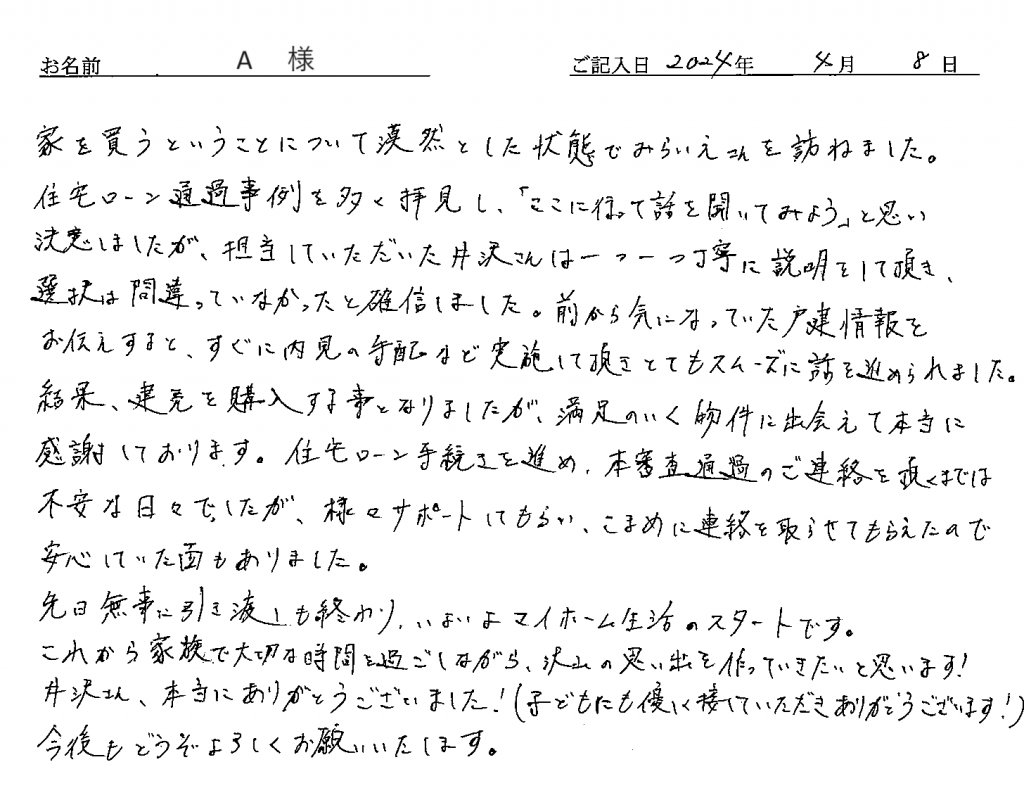 お名前 A 様 ご記入日 2024年 4月 8日
家を買うということについて漠然とした状態でみらいえさんを訪ねました。
住宅ローン通過事例を多く拝見し、「ここに行って話を聞いてみよう」と思い
決意しましたが、担当していただいた井沢さんは一つ一つ丁寧に説明をして頂き、
選択は間違っていなかったと確信しました。前から気になっていた戸建情報を
お伝えすると、すぐに内見の手配など実施して頂きとてもスムーズに話を進められました。
結果、建売を購入する事となりましたが、満足のいく物件に出会えて本当に
感謝しております。住宅ローン手続きを進め、本審査通過のご連絡を頂くまでは
不安な日々でしたが、様々サポートしてもらい、こまめに連絡を取らせてもらえたので
安心していた面もありました。
先日無事に引き渡しも終わり、いよいよマイホーム生活のスタートです。
これから家族で大切な時間を過ごしながら、沢山の思い出を作っていきたいと思います!
井沢さん、本当にありがとうございました!(子どもにも優しく接していただきありがとうございます!)
今後もどうぞよろしくお願いいたします。